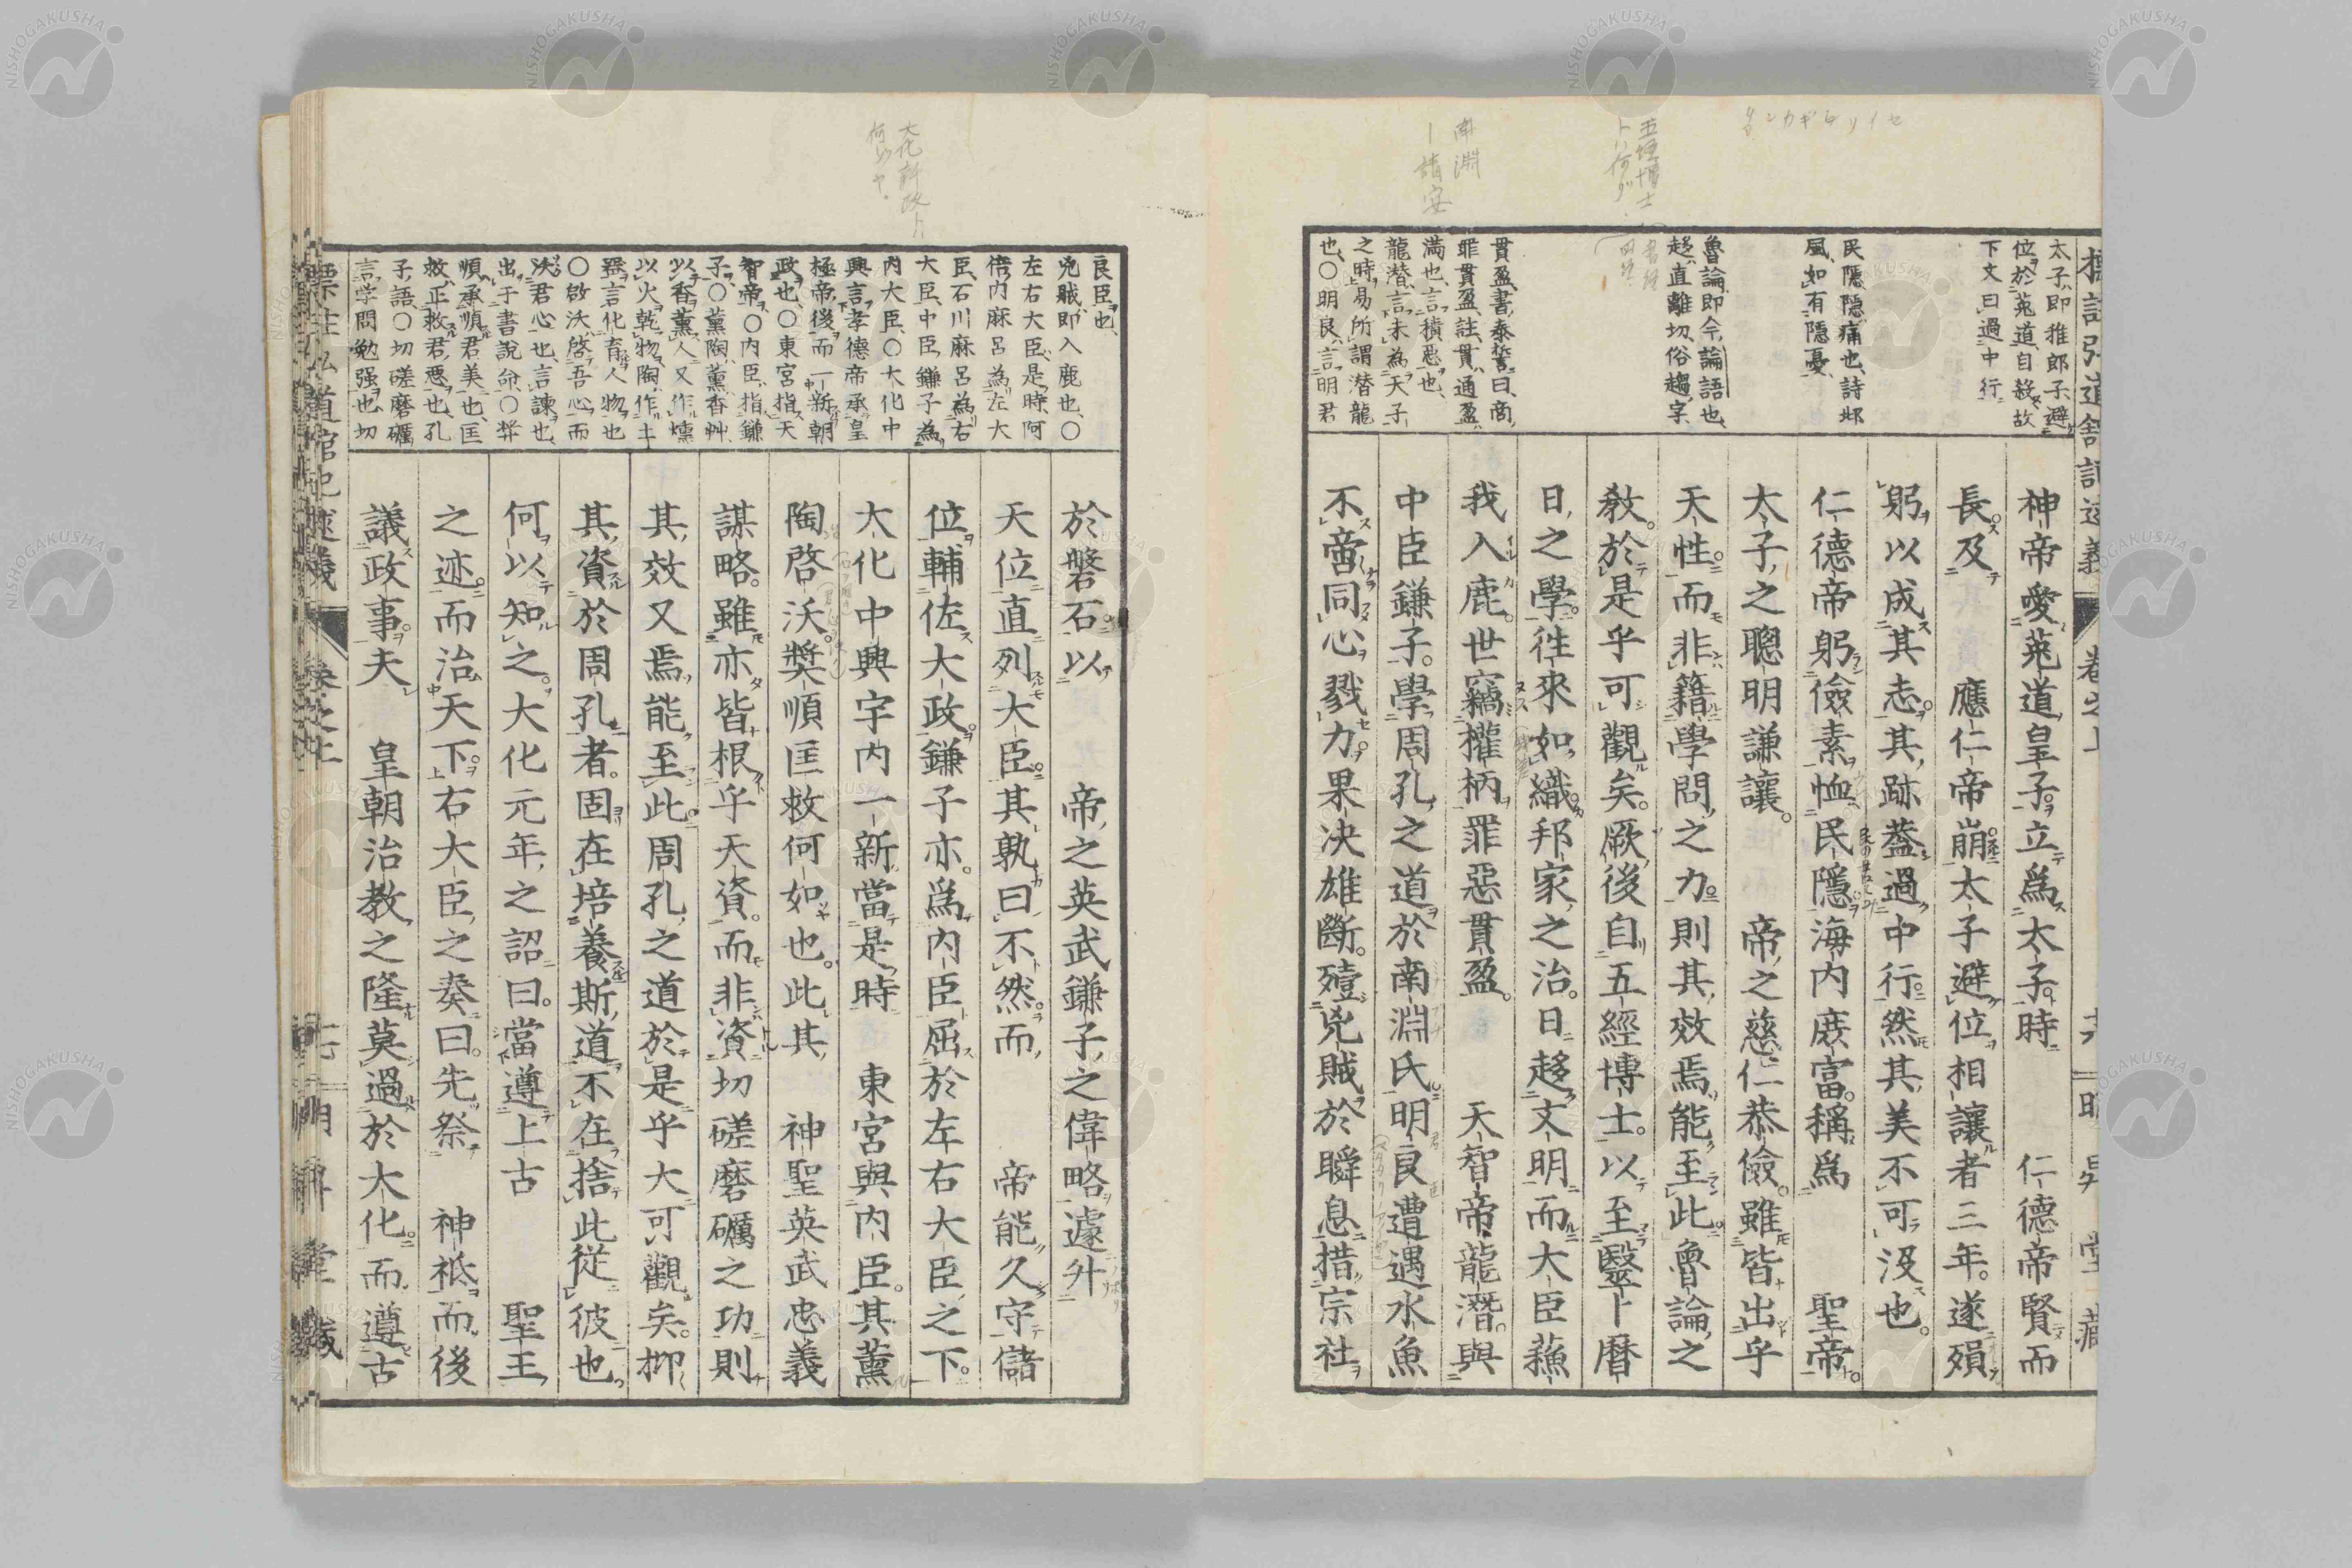 標註弘道館記述義 卷之上 六 明昇堂藏
太子、即稚郎子、避
位於菟道、自殺、故
下文曰、過中行、
民隱、隱痛也、詩邶
風、如有隱憂、
魯論、即今論語也、
趍、直離切、俗趨字、
貫盈、書、泰誓曰、商
罪貫盈、註、貫、通盈、
滿也、言積惡也、
龍潜、言未為天子
之時、易所謂潜龍
也、〇明良、言明君
神帝愛菟道皇子立爲太子時 仁德帝賢而
長及 應仁帝崩太子避位相讓者三年遂殞
躬以成其志其跡葢過中行然其美不可沒也
仁德帝躬儉素恤民隱海内庶富稱爲 聖帝
太子之聰明謙讓 帝之慈仁恭儉雖皆出乎
天性而非籍學問之力則其效焉能至此魯論之
教於是乎可觀矣厥後自五經博士以至醫卜曆
日之學徃來如織邦家之治日趍文明而大臣蘓
我入鹿世竊權柄罪惡貫盈 天智帝龍潛與
中臣鎌子學周孔之道於南淵氏明良遭遇水魚
不啻同心戮力果决雄斷殪兇賊於瞬息措宗社
良臣也、
兇賊、即入鹿也、〇
左右大臣、是時、阿
倍内麻呂為左大
臣、石川麻呂為右
大臣、中臣鎌子為
内大臣、〇大化中
興、言孝德帝承皇
極帝後、而一新朝
政也、〇東宮、指天
智帝、〇内臣、指鎌
子、〇薫陶、薫、香艸、
以香薫人、又作燻
以火乾物、陶、作土
器、言化育人物也
〇啟沃、啓吾心、而
沃君心也、言諫也、
出于書說命、〇奨
順、承順君美也、匡
救、正救君惡也、孔
子語、〇切磋磨礪
言学問勉强也、切
於磐石以 帝之英武鎌子之偉略遽升
天位直列大臣其孰曰不然而 帝能久守儲
位輔佐大政鎌子亦爲内臣屈於左右大臣之下
大化中興宇内一新當是時 東宮與内臣其薫
陶啓沃奬順匡救何如也此其 神聖英武忠義
謀略雖亦皆根乎天資而非資切磋磨礪之功則
其效又焉能至此周孔之道於是乎大可觀矣抑
其資於周孔者固在培養斯道不在捨此從彼也
何以知之大化元年之詔曰當遵上古 聖王
之迹而治天下右大臣之奏曰先祭 神祇而後
議政事夫 皇朝治教之隆莫過於大化而遵古
標註弘道館記述義 卷之上 七 明昇堂藏